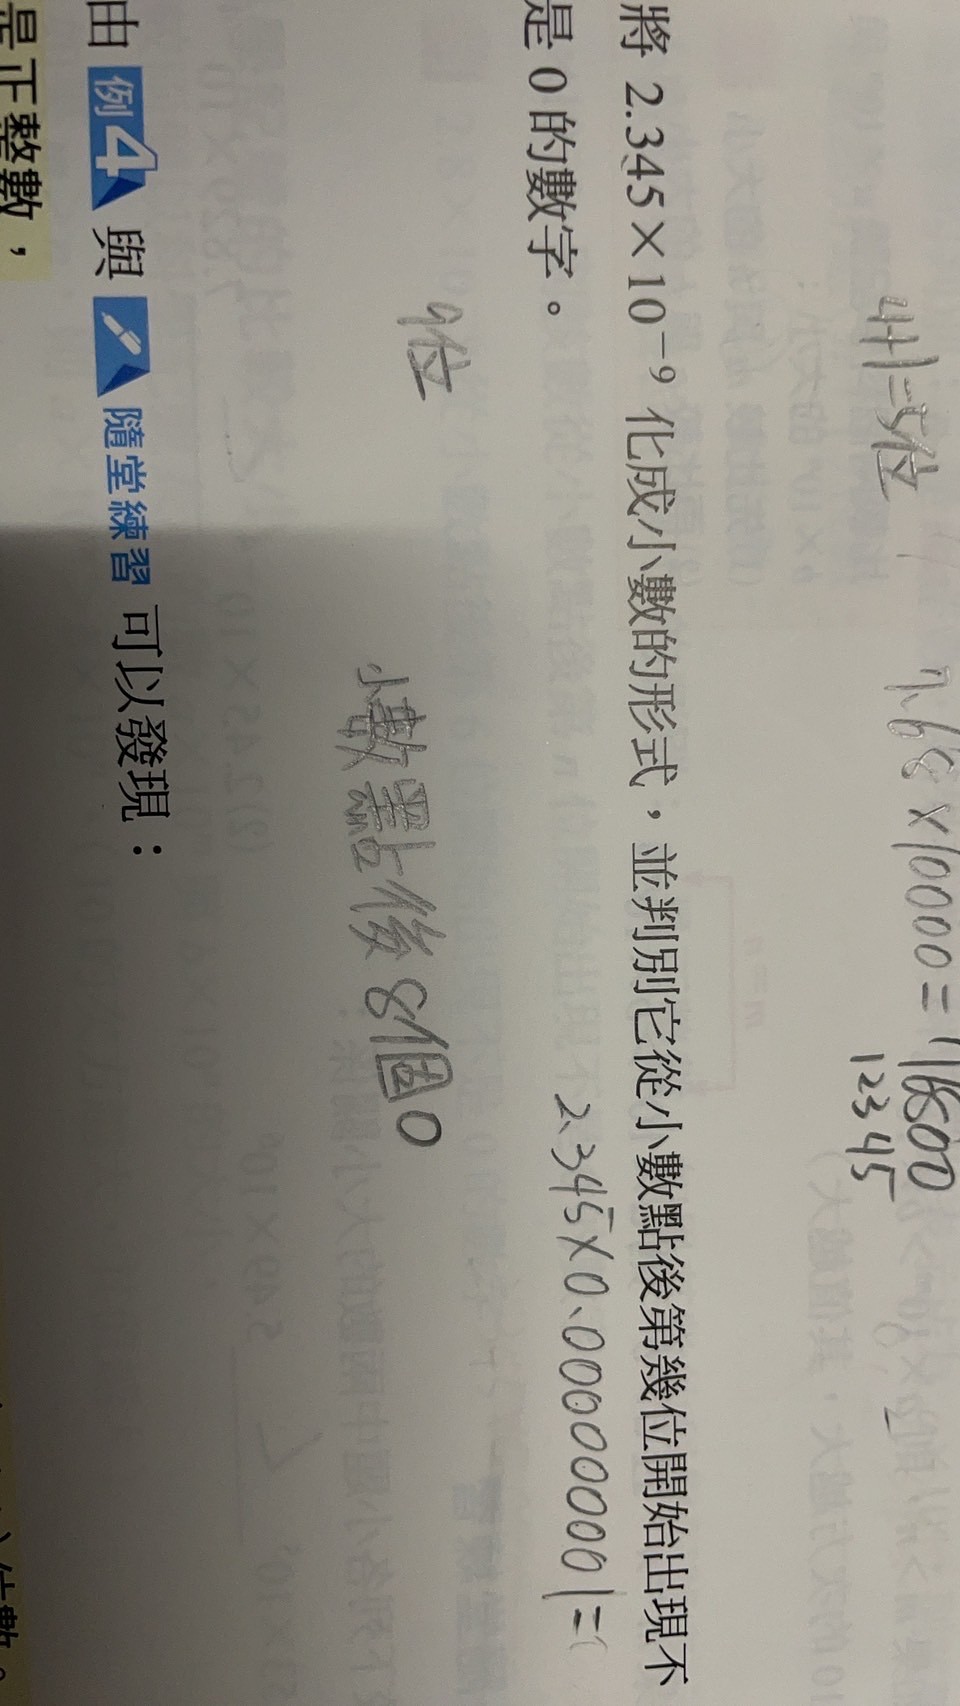 4+1=5位 7.68×10000=
12345
將 2.345×10⁻⁹ 化成小數的形式，並判別它從小數點後第幾位開始出現不
是 0 的數字。
2.345×0.000000001=
9位
小數點後8個0
由 例4 與 隨堂練習 可以發現：
是正整數，